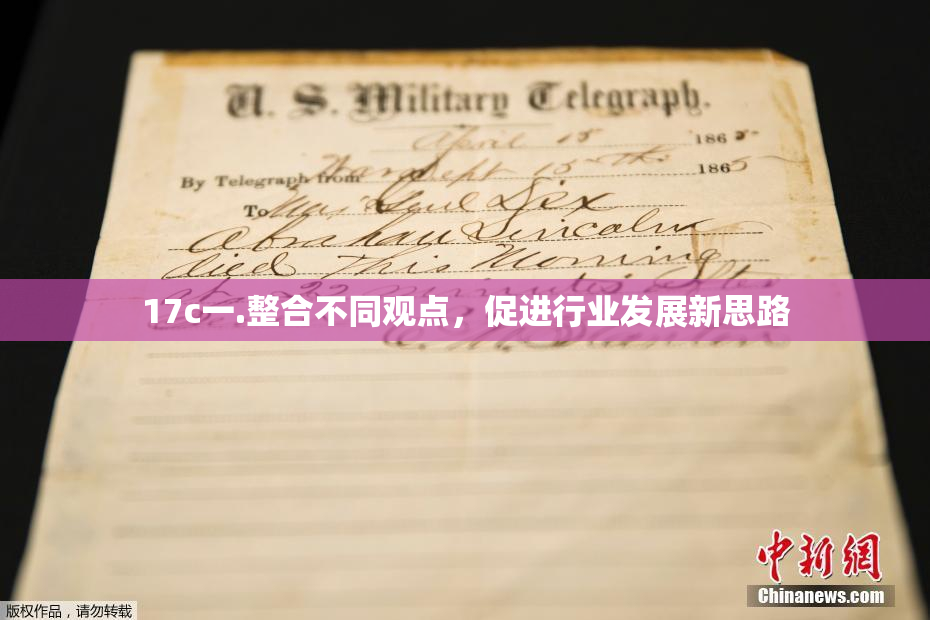 U. S. Military Telegraph.
April 15 1865
By Telegraph from War Dept 15th 1865
To Maj Genl Dix
Abraham Lincoln
died This Morning
at 22 minutes after
17c一.整合不同观点，促进行业发展新思路
E. M. Stanton
中新网
Chinanews.com
版权作品，请勿转载